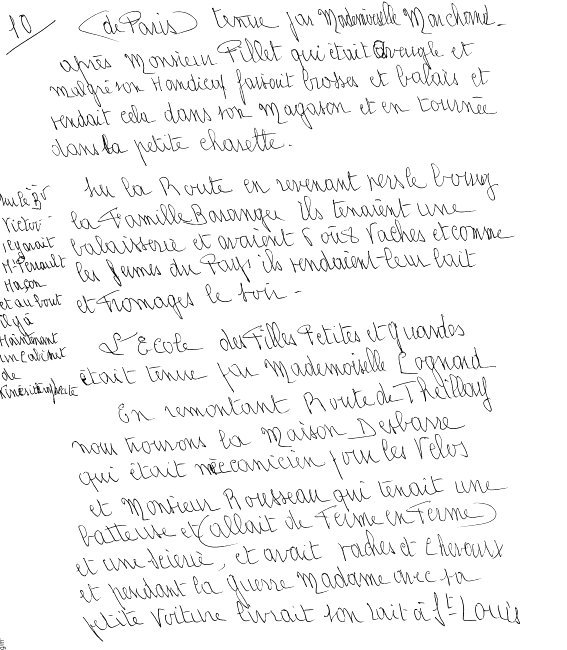 10
(de Paris) tenue par Mademoiselle Marchand
après Monsieur Pillet qui était aveugle et
malgré son Handicap faisait brosses et balais et
vendait cela dans son Magason et en tournée
dans la petite charette.
Sur la Route en revenant vers le bourg
la Famille Baranger ils tenaient une
balaisserie et avaient 6 ou 8 Vaches et comme
les fermes du Pays ils vendaient leur lait
et Fromages le soir -
sur le BV
Victor
il y avait
Mr Perrault
Maçon
et au bout
il y a
Maintenant
un Cabinet
de
L'Ecole des Filles Petites et grandes
était tenue par Mademoiselle Lognard
En remontant Route de Theillay
nous trouvons la Maison Desbarre
qui était mécanicien pour les Velos
et Monsieur Rousseau qui tenait une
batteuse et (allait de Ferme en Ferme)
et une scierie, et avait vaches et chevaux
et pendant la guerre Madame avec sa
petite Voiture livrait son lait à St Louis